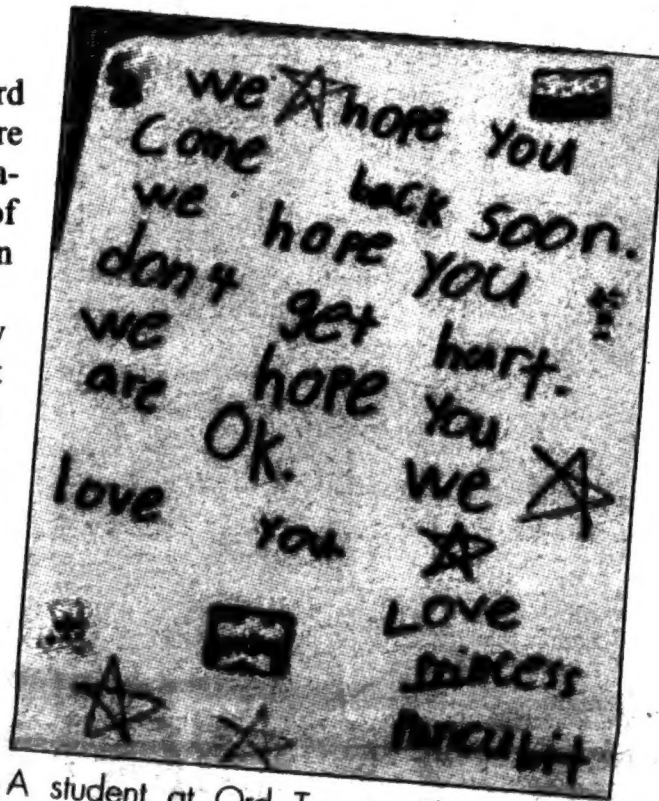 rd
re
a-
of
n
we hope you
Come back soon.
we hope you
don't get hart.
we hope you
are Ok. we
love you.
Love
princess
A student at Ord